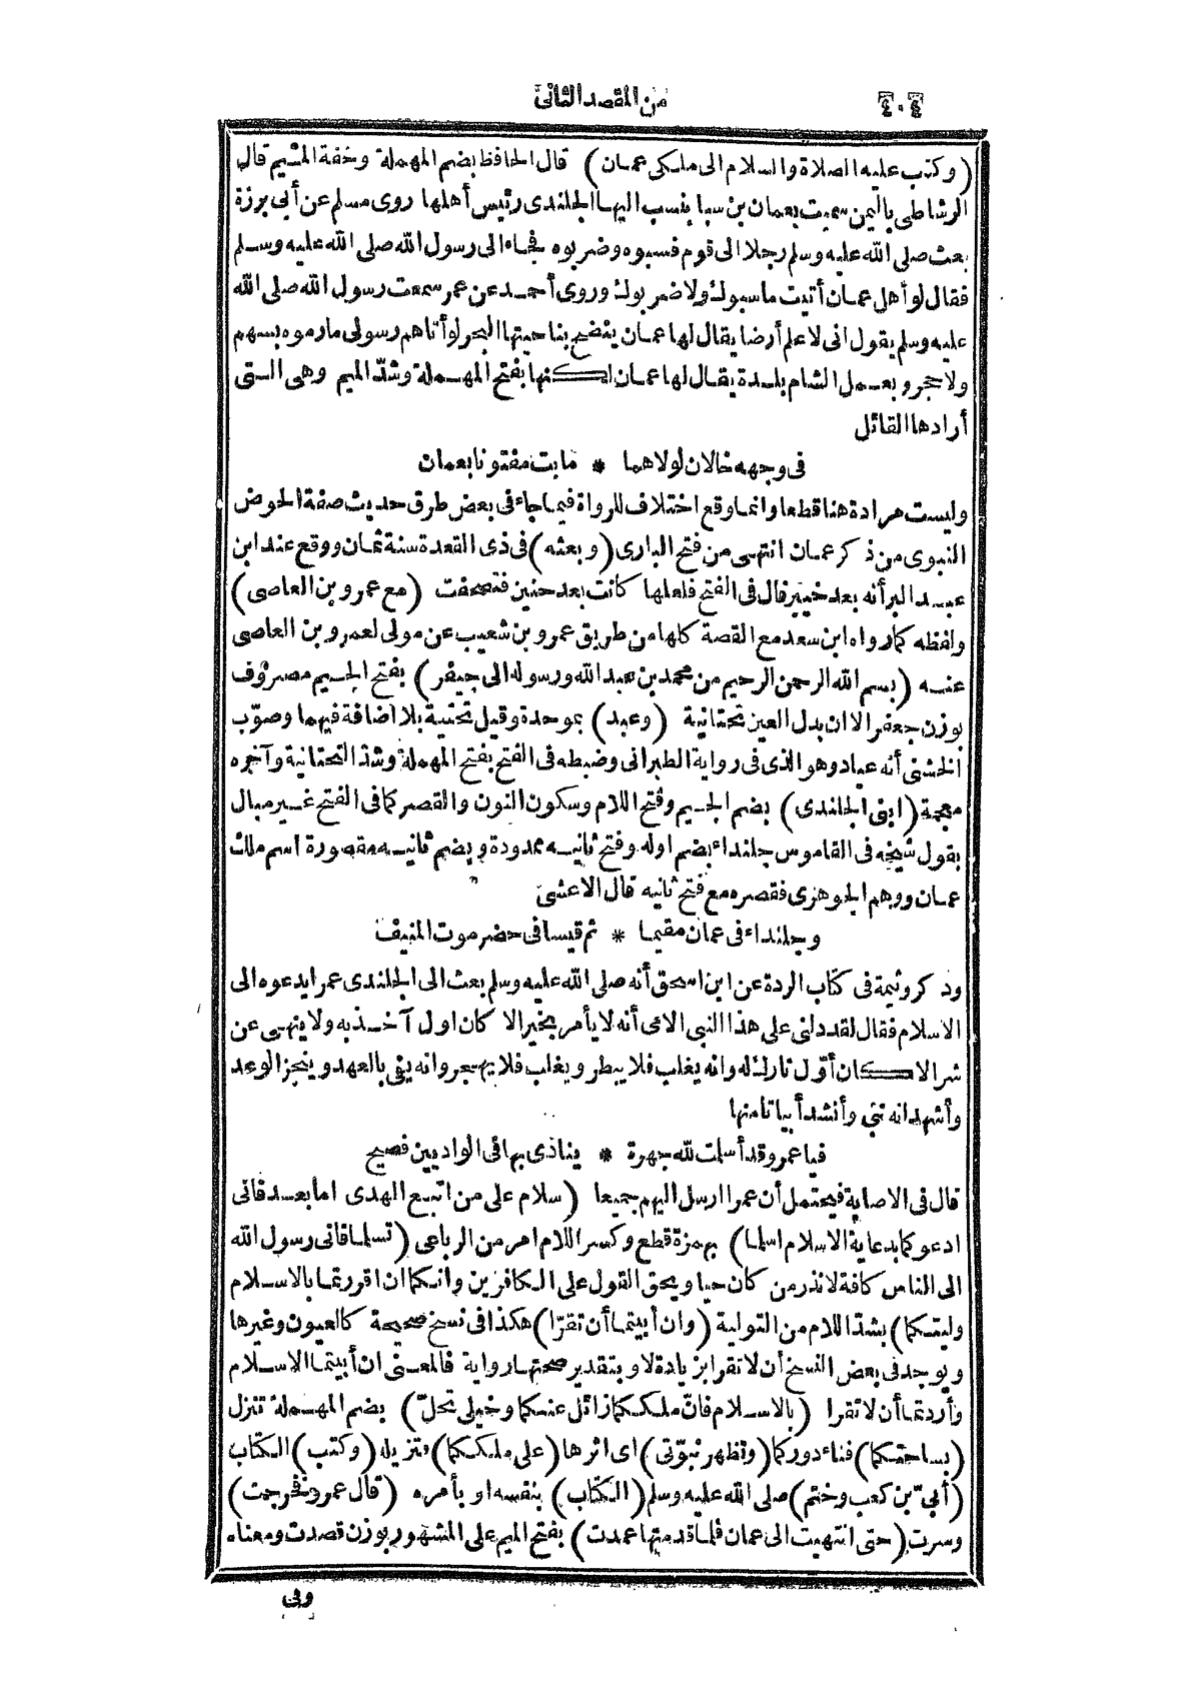 ٤٠٤ من المقصد الثانى
(وكتب عليه الصلاة والسلام الى ملكى عمان) قال الحافظ بضم المهملة وخفة الميم قال
الرشاطى باليمن سميت بعمان بن سبا ينسب اليها الجلندى رئيس أهلها روى مسلم عن أبى برزة
بعث صلى الله عليه وسلم رجلا الى قوم فسبوه وضربوه فجاء الى رسول الله صلى الله عليه وسلم
فقال لو أهل عمان أتيت ماسبوك ولا ضربوك وروى أحمد عن عمر سمعت رسول الله صلى الله
عليه وسلم يقول انى لاعلم أرضا يقال لها عمان ينضح بناحيتها البحر لو أتاهم رسولى مارموه بسهم
ولا حجر وبعمل الشام بلدة يقال لها عمان لكنها بفتح المهملة وشدّ الميم وهى التى
أرادها القائل
فى وجهه خالان لولاهما * مابت مفتونا بعمان
وليست مرادة هنا قطعا وانما وقع اختلاف للرواة فيما جاء فى بعض طرق حديث صفة الحوض
النبوى من ذكر عمان انتهى من فتح البارى (وبعثه) فى ذى القعدة سنة ثمان ووقع عند ابن
عبد البر أنه بعد خيبر قال فى الفتح فلعلها كانت بعد حنين فتصحفت (مع عمرو بن العاصى)
ولفظه كما رواه ابن سعد مع القصة كلها من طريق عمرو بن شعيب عن مولى لعمرو بن العاصى
عنه (بسم الله الرحمن الرحيم من محمد بن عبد الله ورسوله الى جيفر) بفتح الجيم مصروف
بوزن جعفر الا ان بدل العين تحتانية (وعبد) بموحدة وقيل تحتية بلا اضافة فيهما وصوّب
الخشنى أنه عياد وهو الذى فى رواية الطبرانى وضبطه فى الفتح بفتح المهملة وشدّ التحتانية وآخره
معجمة (ابنى الجلندى) بضم الجيم وفتح اللام وسكون النون والقصر كما فى الفتح غير مبال
بقول شيخه فى القاموس جلنداء بضم اوله وفتح ثانيه ممدودة وبضم ثانيه مقصورة اسم ملك
عمان ووهم الجوهرى فقصره مع فتح ثانيه قال الاعشى
وجلنداء فى عمان مقيما * ثم قيسا فى حضرموت المنيف
وذكر وثيمة فى كتاب الردة عن ابن اسحق أنه صلى الله عليه وسلم بعث الى الجلندى عمرا يدعوه الى
الاسلام فقال لقد دلنى على هذا النبى الامى أنه لا يأمر بخير الا كان اول آخذ به ولا ينهى عن
شر الا كان أوّل تارك له وانه يغلب فلا يبطر ويغلب فلا يهجر وانه يفى بالعهد وينجز الوعد
وأشهد انه نبى وأنشد أبياتا منها
فيا عمرو قد أسلمت لله جهرة * ينادى بها فى الواديين فصيح
قال فى الاصابة فيحتمل أن عمرا ارسل اليهم جميعا (سلام على من اتبع الهدى اما بعد فانى
ادعوكما بدعاية الاسلام اسلما) بهمزة قطع وكسر اللام امر من الرباعى (تسلما فانى رسول الله
الى الناس كافة لانذر من كان حيا ويحق القول على الكافرين وانكما ان اقررتما بالاسلام
وليتكما) بشدّ اللام من التولية (وان أبيتما أن تقرّا) هكذا فى نسخ صحيحة كالعيون وغيرها
ويوجد فى بعض النسخ أن لا تقرا بزيادة لا وبتقدير صحتها رواية فالمعنى ان أبيتما الاسلام
وأردتما أن لا تقرا (بالاسلام فانّ ملككما زائل عنكما وخيلى تحلّ) بضم المهملة تنزل
(بساحتكما) فناء دوركما (وتظهر نبوّتى) اى اثرها (على ملككما) فتزيله (وكتب) الكتاب
(أبىّ بن كعب وختم) صلى الله عليه وسلم (الكتاب) بنفسه او بأمره (قال عمرو فخرجت)
وسرت (حتى انتهيت الى عمان فلما قدمتها عمدت) بفتح الميم على المشهور بوزن قصدت ومعناه
وفى